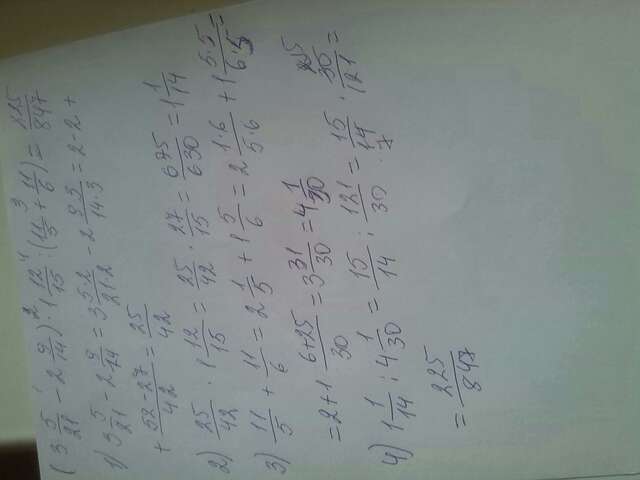 (3 5/21 - 2 9/14) · 1 12/15 : (11/5 + 11/6) = 225/847
1) 3 5/21 - 2 9/14 = 3 5·2/21·2 - 2 9·3/14·3 = 2 - 2 +
+ 52-27/42 = 25/42
2) 25/42 · 1 12/15 = 25/42 · 27/15 = 675/630 = 1 1/14
3) 11/5 + 11/6 = 2 1/5 + 1 5/6 = 2 1·6/5·6 + 1 5·5/6·5 =
= 2 + 1 6+25/30 = 3 31/30 = 4 1/30
4) 1 1/14 : 4 1/30 = 15/14 : 121/30 = 15/14 · 30/121 =
= 225/847